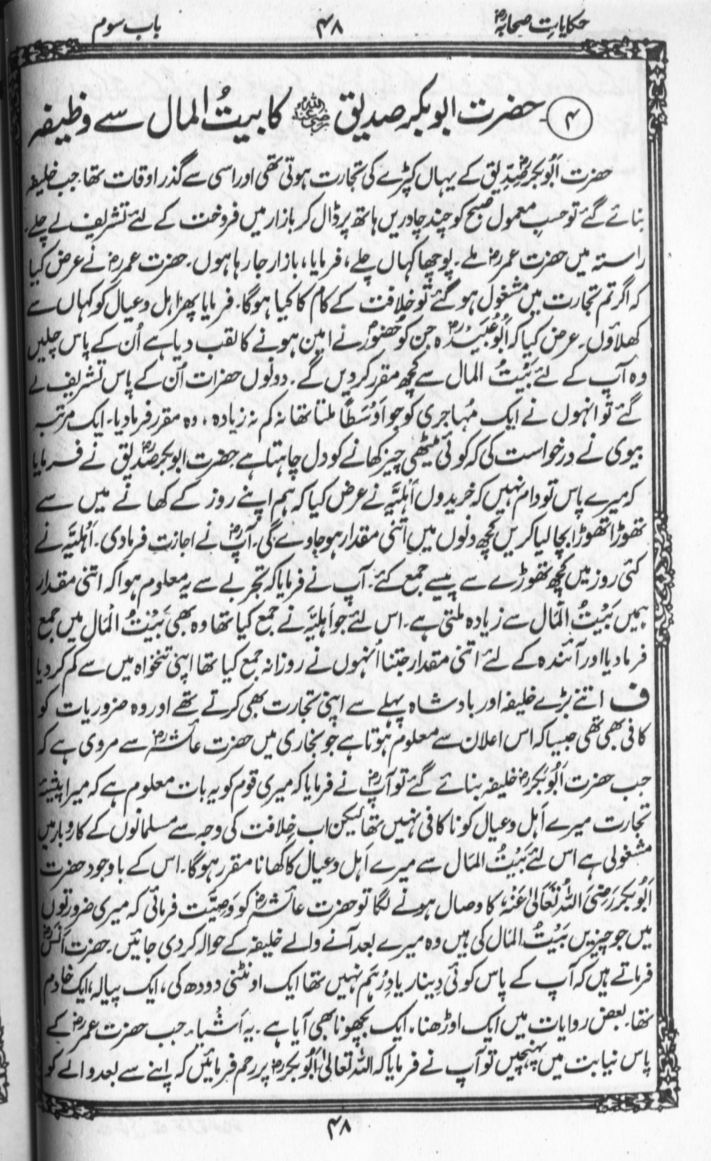 حکایاتِ صحابہؓ ۴۸ باب سوم
۴ - حضرت ابوبکر صدیق رضی اللہ عنہ کا بیتُ المال سے وظیفہ
حضرت اَبُوبکر صِدّیقؓ کے یہاں کپڑے کی تجارت ہوتی تھی اور اسی سے گذر اوقات تھا۔ جب خلیفہ
بنائے گئے تو حسبِ معمول صبح کو چند چادریں ہاتھ پر ڈال کر بازار میں فروخت کے لئے تشریف لے چلے۔
راستہ میں حضرت عمرؓ ملے۔ پوچھا کہاں چلے، فرمایا، بازار جا رہا ہوں۔ حضرت عمرؓ نے عرض کیا
کہ اگر تم تجارت میں مشغول ہو گئے تو خلافت کے کام کا کیا ہوگا۔ فرمایا پھر اہل و عیال کو کہاں سے
کھلاؤں۔ عرض کیا کہ اَبُو عُبَیْدَہؓ جن کو حُضورؐ نے امین ہونے کا لقب دیا ہے اُن کے پاس چلیں
وہ آپ کے لئے بَیْتُ المال سے کچھ مقرر کر دیں گے۔ دونوں حضرات اُن کے پاس تشریف لے
گئے تو انہوں نے ایک مُہاجری کو جو اَوسَطًا ملتا تھا نہ کم نہ زیادہ، وہ مقرر فرما دیا۔ ایک مرتبہ
بیوی نے درخواست کی کہ کوئی میٹھی چیز کھانے کو دل چاہتا ہے حضرت ابوبکر صِدّیقؓ نے فرمایا
کہ میرے پاس تو دام نہیں کہ خریدوں اَہلیہ نے عرض کیا کہ ہم اپنے روز کے کھانے میں سے
تھوڑا تھوڑا بچا لیا کریں کچھ دنوں میں اتنی مقدار ہو جاوے گی۔ آپؓ نے اجازت فرما دی۔ اَہلیہ نے
کئی روز میں کچھ تھوڑے سے پیسے جمع کئے۔ آپ نے فرمایا کہ تجربے سے یہ معلوم ہوا کہ اتنی مقدار
ہمیں بَیْتُ المال سے زیادہ ملتی ہے۔ اس لئے جو اہلیہ نے جمع کیا تھا وہ بھی بَیْتُ المال میں جمع
فرما دیا اور آئندہ کے لئے اتنی مقدار جتنا انہوں نے روزانہ جمع کیا تھا اپنی تنخواہ میں سے کم کر دیا
ف اتنے بڑے خلیفہ اور بادشاہ پہلے سے اپنی تجارت بھی کرتے تھے اور وہ ضروریات کو
کافی بھی تھی جیسا کہ اس اعلان سے معلوم ہوتا ہے جو بخاری میں حضرت عائشہؓ سے مروی ہے کہ
جب حضرت اَبُوبکرؓ خلیفہ بنائے گئے تو آپؓ نے فرمایا کہ میری قوم کو یہ بات معلوم ہے کہ میرا پیشۂ
تجارت میرے اہل و عیال کو ناکافی نہیں تھا لیکن اب خلافت کی وجہ سے مسلمانوں کے کاروبار میں
مشغولی ہے اس لئے بَیْتُ المال سے میرے اہل و عیال کا کھانا مقرر ہوگا۔ اس کے باوجود حضرت
اَبُوبکر رَضِیَ اللہُ تَعَالٰی عَنْہُ کا وصال ہونے لگا تو حضرت عائشہؓ کو وَصِیَّت فرمائی کہ میری ضرورتوں
میں جو چیزیں بَیْتُ المال کی ہیں وہ میرے بعد آنے والے خلیفہ کے حوالہ کر دی جائیں۔ حضرت اَنسؓ
فرماتے ہیں کہ آپ کے پاس کوئی دِینار یا دِرْہَم نہیں تھا ایک اونٹنی دودھ کی، ایک پیالہ، ایک خادم
تھا۔ بعض روایات میں ایک اوڑھنا، ایک بچھونا بھی آیا ہے۔ یہ اَشْیاء جب حضرت عمرؓ کے
پاس نیابت میں پہنچیں تو آپ نے فرمایا کہ اللہ تعالیٰ اَبُوبکرؓ پر رحم فرمائیں کہ اپنے سے بعد والے کو
۴۸